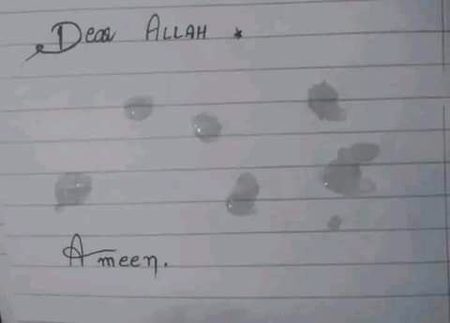 Dear ALLAH *
Ameen.